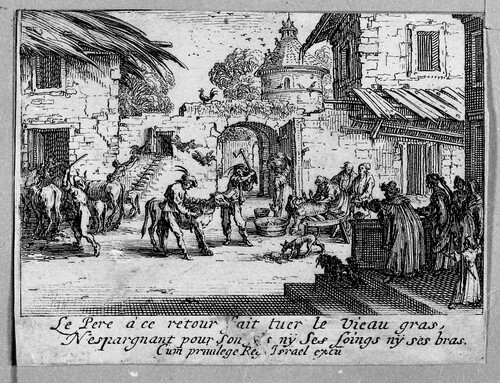 Le Pere à ce retour fait tuer le Vieau gras,
N'espargnant pour son ny ses soings ny ses bras.
Cum privilege Reg Israel excu